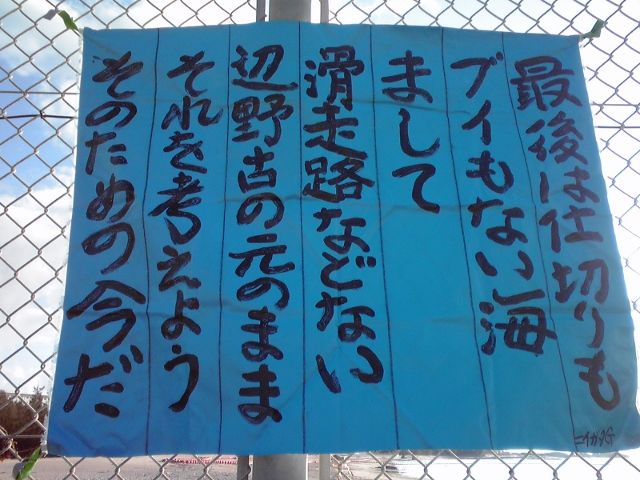 最後は仕切りも
ブイもない海
まして
滑走路などない
辺野古の元のまま
それを考えよう
そのための今だ
ニイガタG